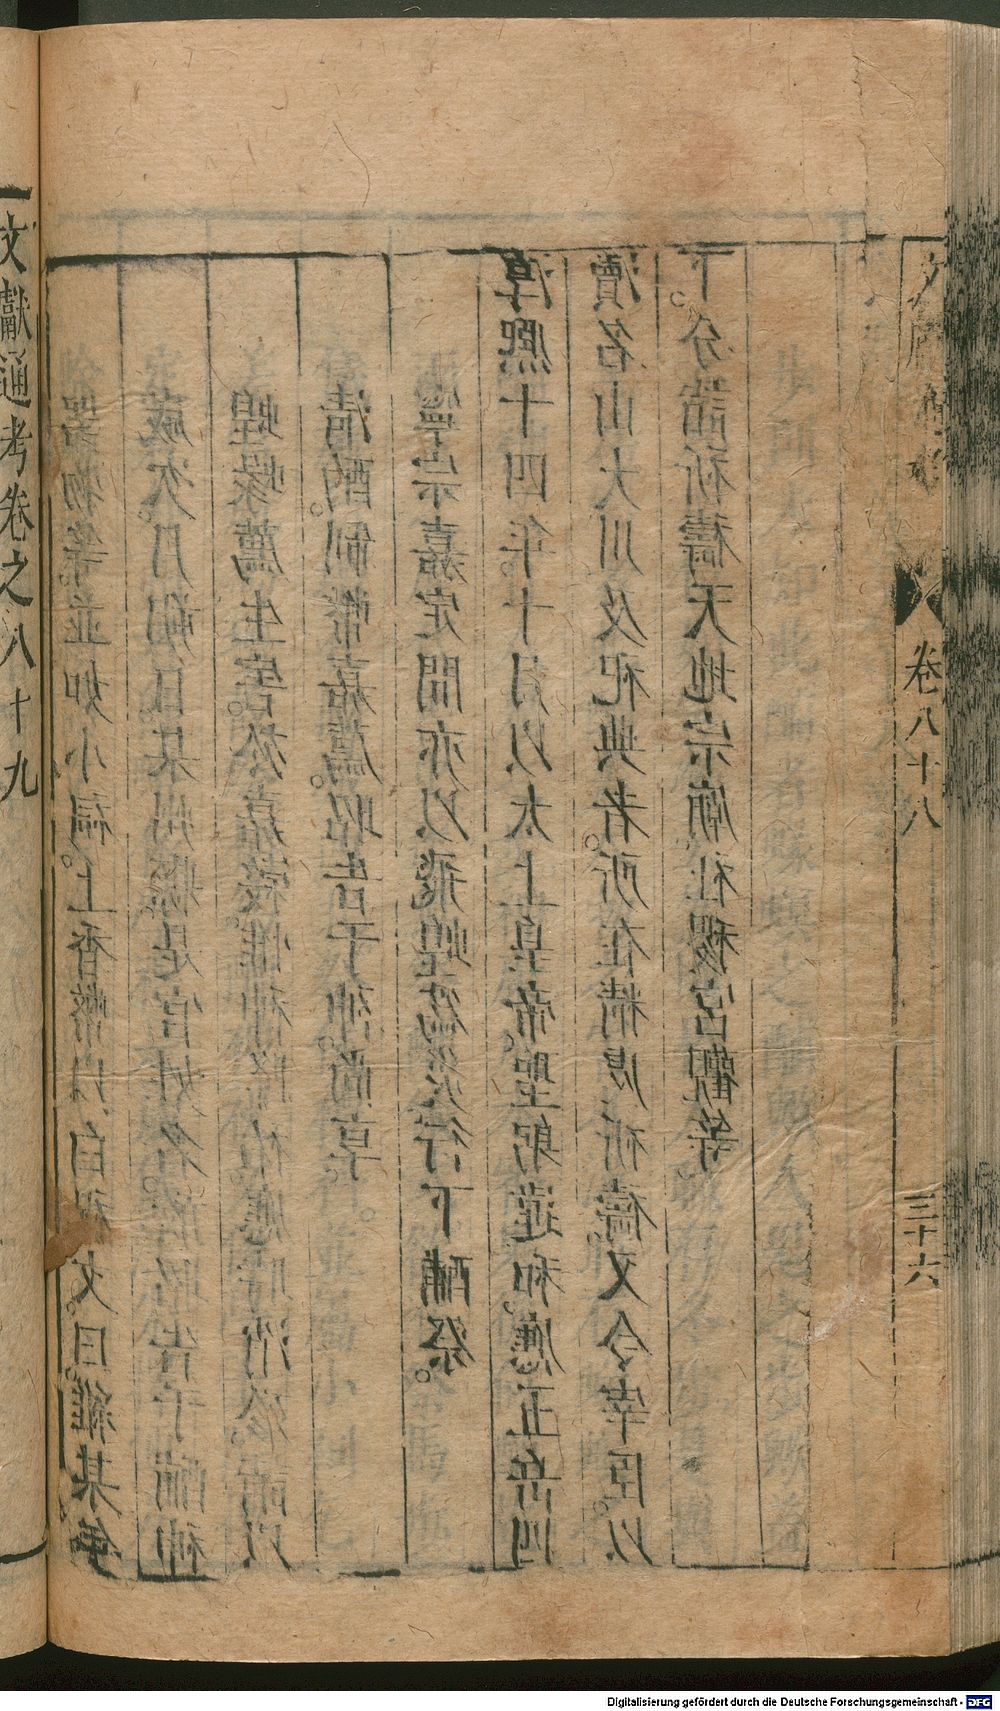 文獻通考卷之八十九
器物等。並如小祠。上香幣以白祝文。曰。維某年
歲次月朔日某州縣具官姓名。敢昭告于酺神
蝗蝝薦生。害於嘉穀。惟神降祐。應時消殄。請以
清酌。制幣嘉薦。昭告于神。尚享。
寧宗嘉定間亦以飛蝗為災行下酺祭。
淳熙十四年。十月以太上皇帝聖躬違和。應五岳四
瀆名山大川及祀典者。所在精虔祈禱又令宰臣。以
下。分詣祈禱天地宗廟社稷宮觀等。
卷八十八
三十六
Digitalisierung gefördert durch die Deutsche Forschungsgemeinschaft - DFG